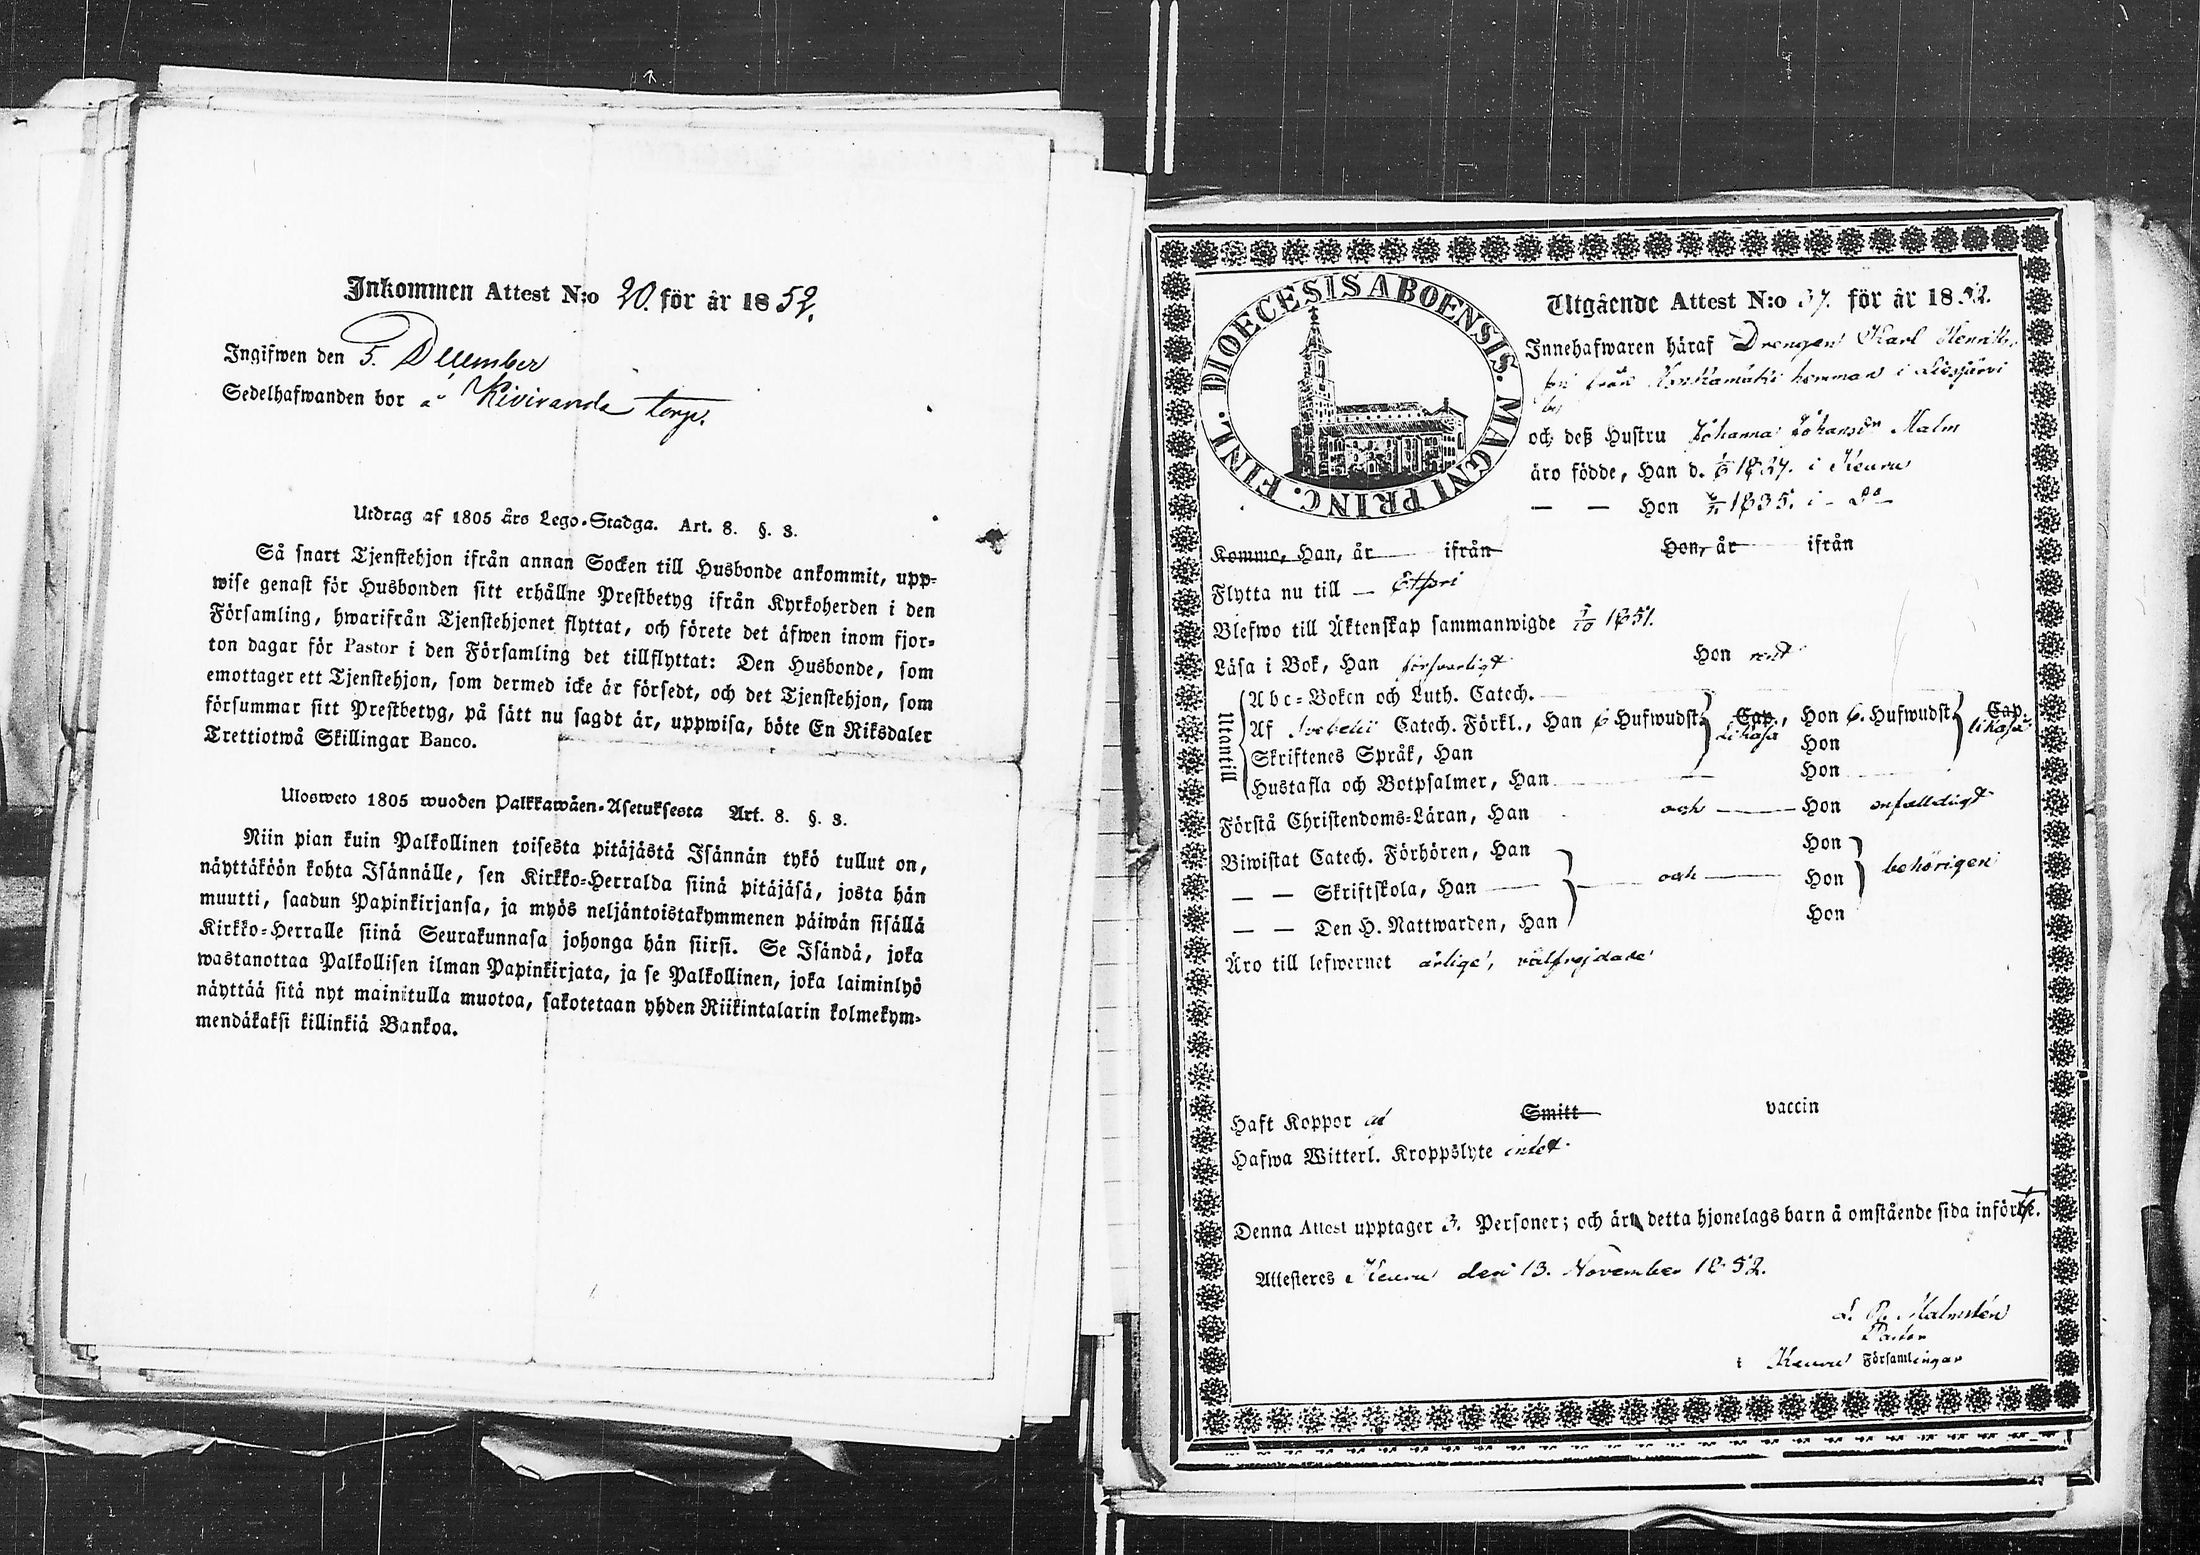 Inkommen Attest N:o 20. för år 1852.
Ingifwen den 5. December
Sedelhafwanden bor å Kiviranda torp.
Utdrag af 1805 års Lego-Stadga. Art. 8. §. 3.
Så snart Tjenstehjon ifrån annan Socken till Husbonde ankommit, upp-
wise genast för Husbonden sitt erhållne Prestbetyg ifrån Kyrkoherden i den
Församling, hwarifrån Tjenstehjonet flyttat, och förete det äfwen inom fjor-
ton dagar för Pastor i den Församling det tillflyttat: Den Husbonde, som
emottager ett Tjenstehjon, som dermed icke är försedt, och det Tjenstehjon, som
försummar sitt Prestbetyg, på sätt nu sagdt är, uppwisa, böte En Riksdaler
Trettiotwå Skillingar Banco.
Ulosweto 1805 wuoden Palkkawäen-Asetuksesta Art. 8. §. 3.
Niin pian kuin Palkollinen toisesta pitäjästä Isännän tykö tullut on,
näyttäköön kohta Isännälle, sen Kirkko-Herralda siinä pitäjäsä, josta hän
muutti, saadun Papinkirjansa, ja myös neljäntoistakymmenen päiwän sisällä
Kirkko-Herralle siinä Seurakunnasa johonga hän siirsi. Se Isändä, joka
wastanottaa Palkollisen ilman Papinkirjata, ja se Palkollinen, joka laiminlyö
näyttää sitä nyt mainitulla muotoa, sakotetaan yhden Riikintalarin kolmekym-
mendäkaksi killinkiä Bankoa.
DIOECESIS ABOENSIS. MAGNI PRINC. FINL.
Utgående Attest N:o 37. för år 1852.
Innehafwaren häraf Drengen Karl Henriks
son från hemman i Liesjärvi
by
och deß Hustru Johanna Johansdr Malm
äro födde, Han d. 1827. i Keuru
— — Hon 1835. i - Do -
Komme, Han, år ifrån Hon, år ifrån
Flytta nu till — Etseri
Blefwo till Äktenskap sammanwigde 5/10 1851.
Läsa i Bok, Han försvarligt Hon rent
Utantill
Abc-Boken och Luth. Catech.
Af Svebelii Catech. Förkl., Han 6 Hufwudst. Cap., Hon 6. Hufwudst. Cap.
likaså likaså
Skriftenes Språk, Han Hon
Hustafla och Botpsalmer, Han Hon
Förstå Christendoms-Läran, Han och Hon enfalldigt
Biwistat Catech. Förhören, Han Hon
— — Skriftskola, Han och Hon behörigen
— — Den H. Nattwarden, Han Hon
Äro till lefwernet ärlige, välfrejdade
Haft Koppor Smitt vaccin
Hafwa Witterl. Kroppslyte intet.
Denna Attest upptager 3. Personer; och är detta hjonelags barn å omstående sida införde.
Attesteres Keuru den 13. November 1852.
Malmstén
Pastor
i Keuru Församlingar